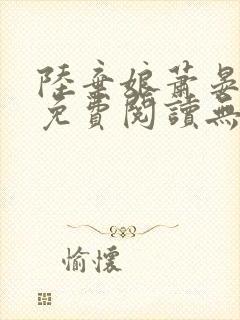 陸棄娘蕭晏
免費閱讀無
愉懷